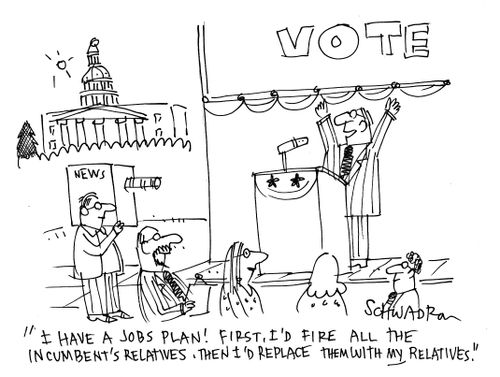 VOTE
NEWS
SCHWADRON
"I HAVE A JOBS PLAN! FIRST, I'D FIRE ALL THE
INCUMBENT'S RELATIVES. THEN I'D REPLACE THEM WITH MY RELATIVES."